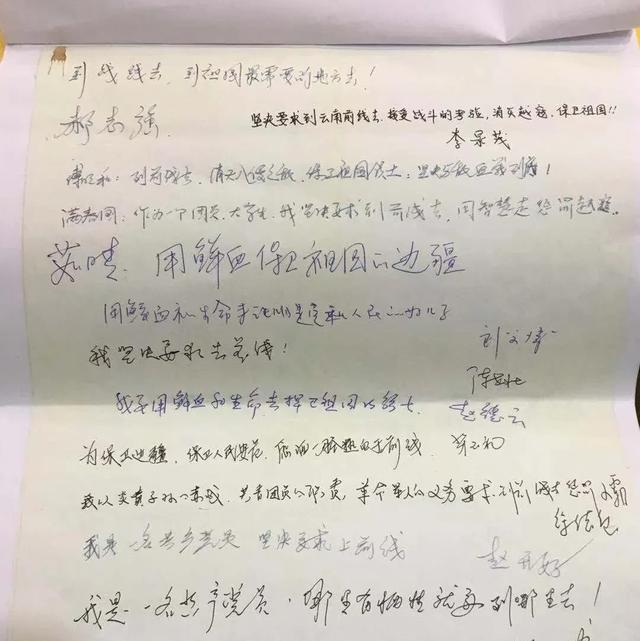 到战线去,到祖国最需要的地方去!
郝志强
坚决要求到云南前线去,接受战斗的考验,消灭越寇,保卫祖国!!
李景茂
到前线去,消灭入侵之敌,保卫祖国领土,坚决与敌血战到底!
满春同:作为一个团员、大学生,我坚决要求到前线去,用智慧
茹晴:用鲜血保卫祖国的边疆
用鲜血和生命来证明是党和人民的好儿子
我坚决要求去前线!
我要用鲜血和生命去捍卫祖国的领土.
赵德云
为保卫边疆,保卫人民安危,愿洒一腔热血于前线
我以炎黄子孙的赤诚,共青团员的职责,革命军人的义务要求到前线去
我是一名共产党员 坚决要求上前线
我是一名共产党员,哪里有牺牲就要到哪里去!